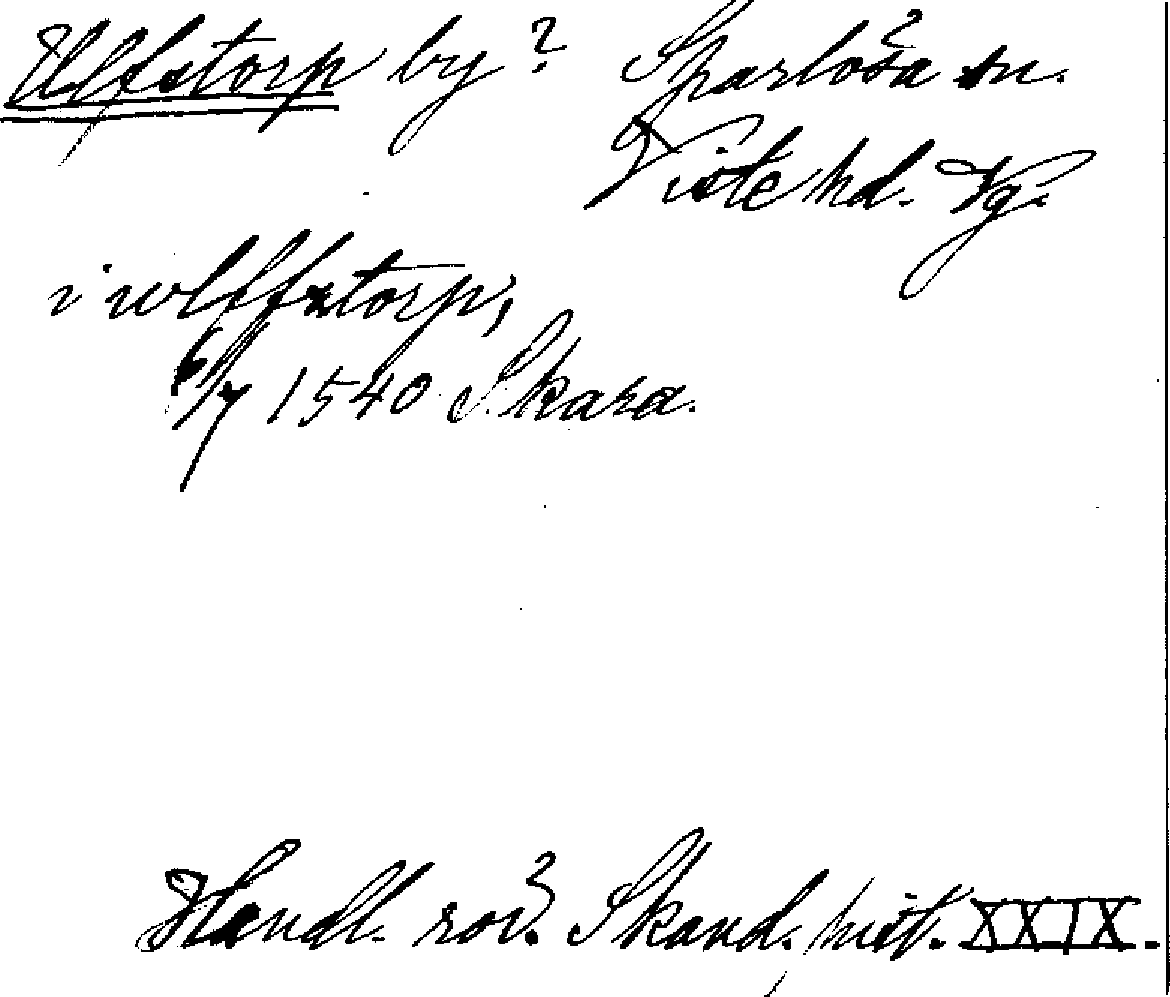 Ulfstorp by? Sparlösa sn.
Viste hd. Vg.
i wlffstorp,
6/7 1540 Skara.
Handl. rör. Skand. hist. XXIX.